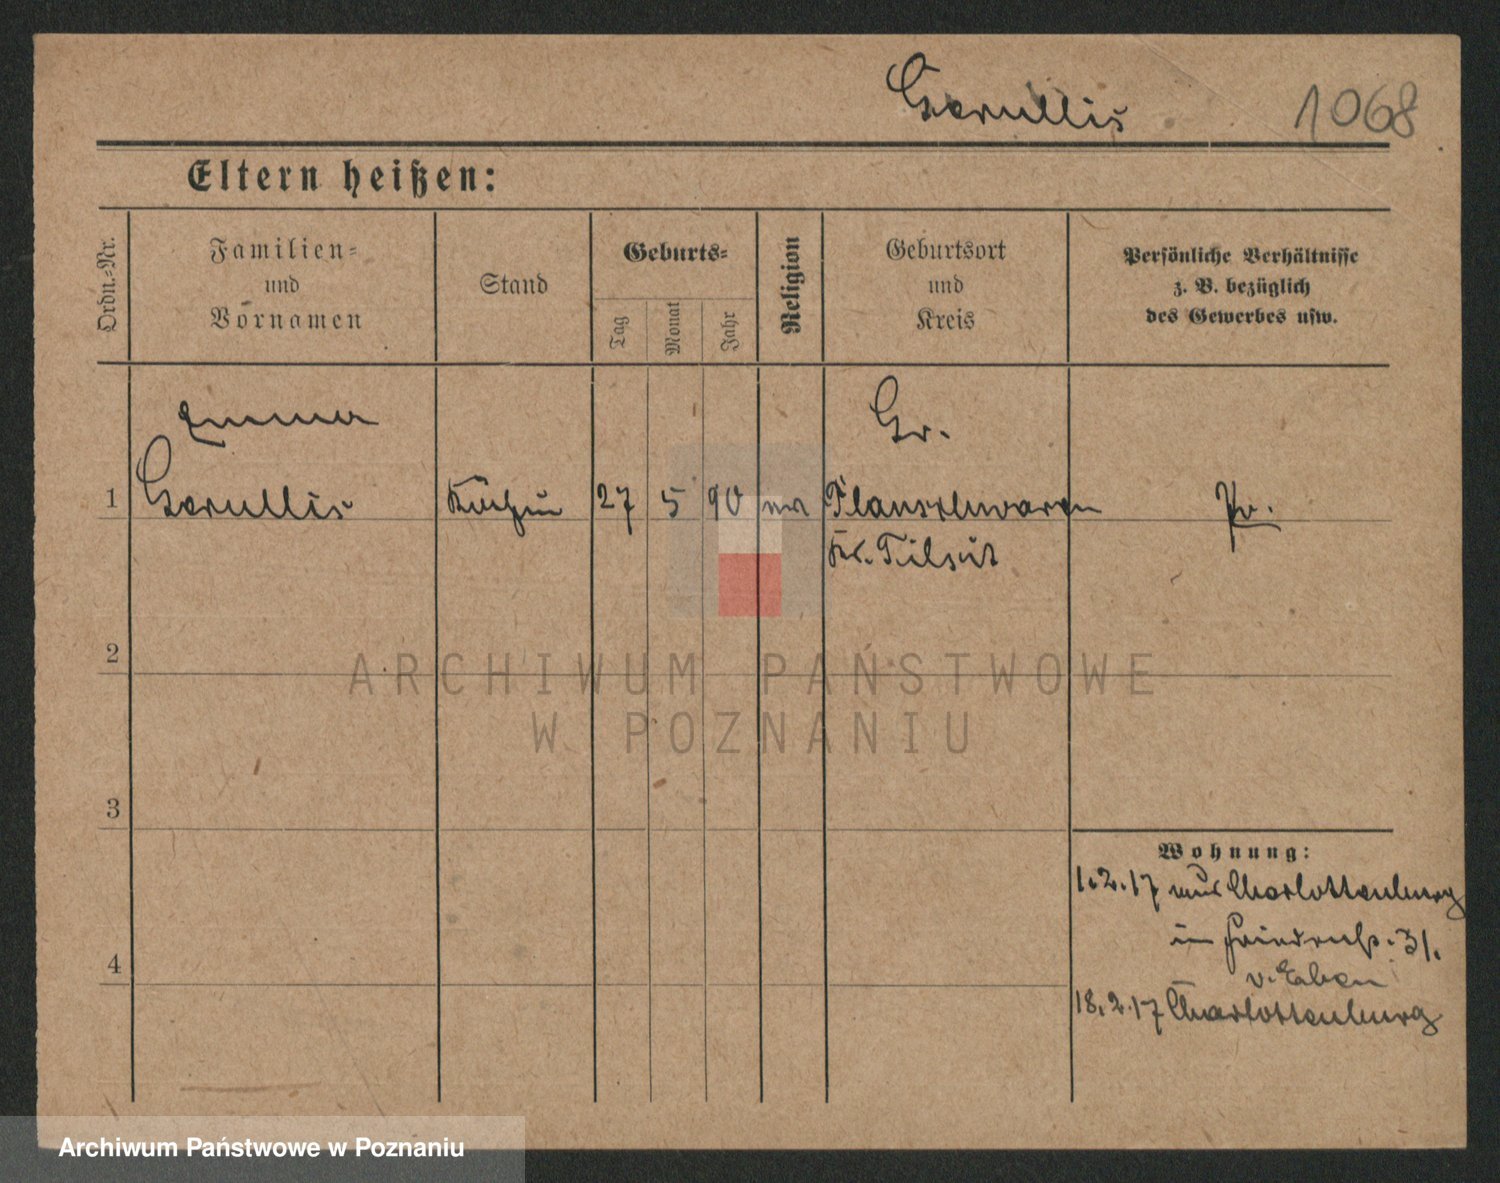 Gerullis
1068
Eltern heißen:
Ordn.=Nr.
Familien=
und
Vornamen
Stand
Geburts=
Tag
Monat
Jahr
Religion
Geburtsort
und
Kreis
Persönliche Verhältnisse
z. B. bezüglich
des Gewerbes usw.
Emma
Gr.
1 Gerullis Köchin 27 5 90 Pr.
Kr. Tilsit
2
3
4
Wohnung:
1.2.17 aus Charlottenburg
in 31.
18.2.17 Charlottenburg
ARCHIWUM PAŃSTWOWE
W POZNANIU
Archiwum Państwowe w Poznaniu